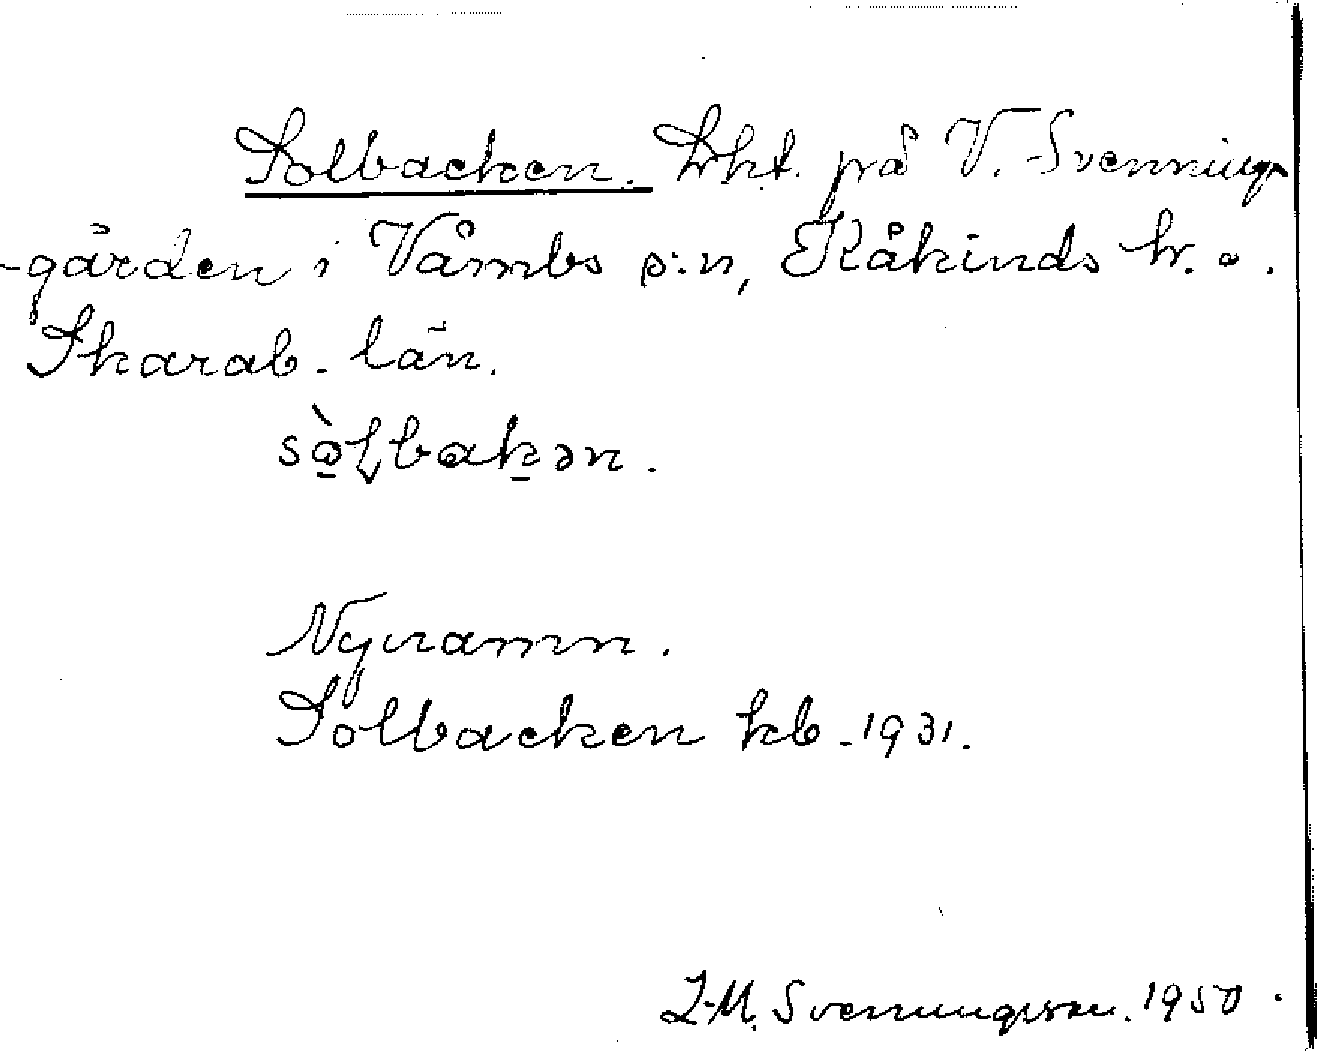 Solbacken. Lht. på V. Svennings
-gården i Våmbs s:n, Kåkinds hr. o.
Skarab. län.
sὰɭbakən.
Nynamn.
Solbacken kb. 1931.
Svenningsson. 1950.